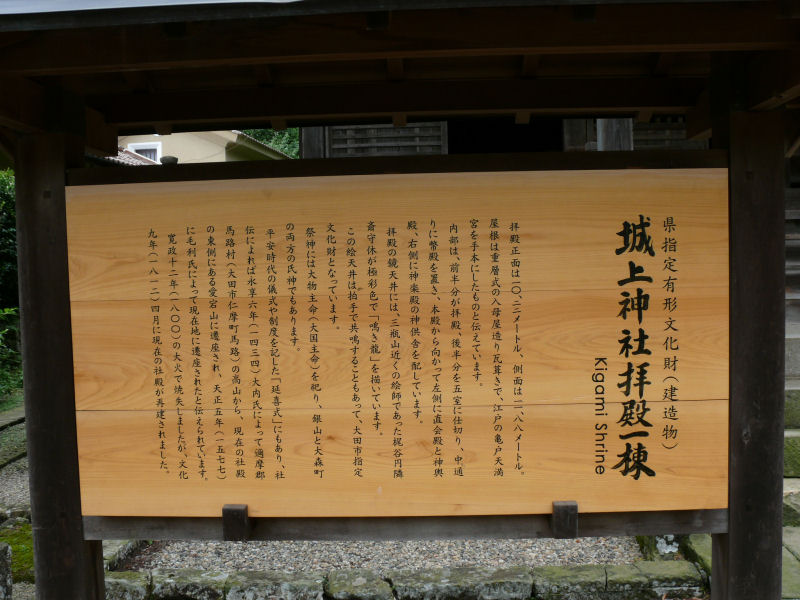 県指定有形文化財(建造物)
城上神社拝殿一棟
Kigami Shrine
拝殿正面は一〇、二二メートル、側面は一一、八八メートル。
屋根は重層式の入母屋造り瓦葺きで、江戸の亀戸天満
宮を手本にしたものと伝えています。
内部は、前半分が拝殿、後半分を五室に仕切り、中通
りに幣殿を置き、本殿から向かって左側に直会殿と神輿
殿、右側に神楽殿の神供舎を配しています。
拝殿の鏡天井には、三瓶山近くの絵師であった梶谷円隣
斎守休が極彩色で「鳴き龍」を描いています。
この絵天井は拍手で共鳴することもあって、大田市指定
文化財となっています。
祭神には大物主命(大国主命)を祀り、銀山と大森町
の両方の氏神でもあります。
平安時代の儀式や制度を記した「延喜式」にもあり、社
伝によれば永享六年(一四三四)大内氏によって邇摩郡
馬路村(大田市仁摩町馬路)の高山から、現在の社殿
の東側にある愛宕山に遷座され、天正五年(一五七七)
に毛利氏によって現在地に遷座されたと伝えられています。
寛政十二年(一八〇〇)の大火で焼失しましたが、文化
九年(一八一二)四月に現在の社殿が再建されました。